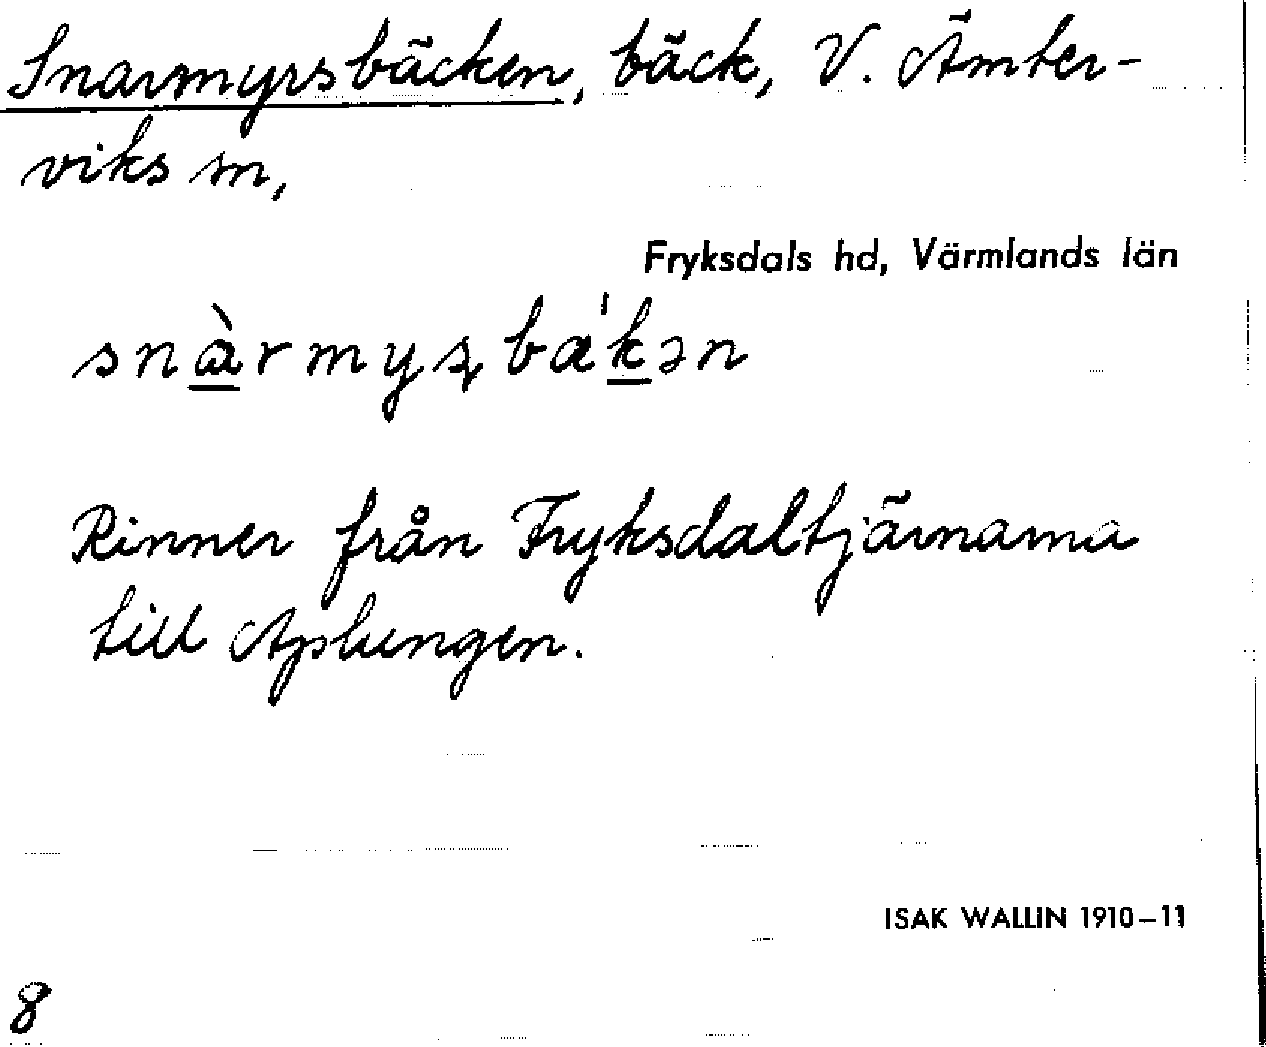 Snarmyrsbäcken, bäck, V. Ämter-
viks sn,
Fryksdals hd, Värmlands län
snàrmyʂbæ'kən
Rinner från Fryksdaltjärnarna
till Aplungen.
ISAK WALLIN 1910–11
8